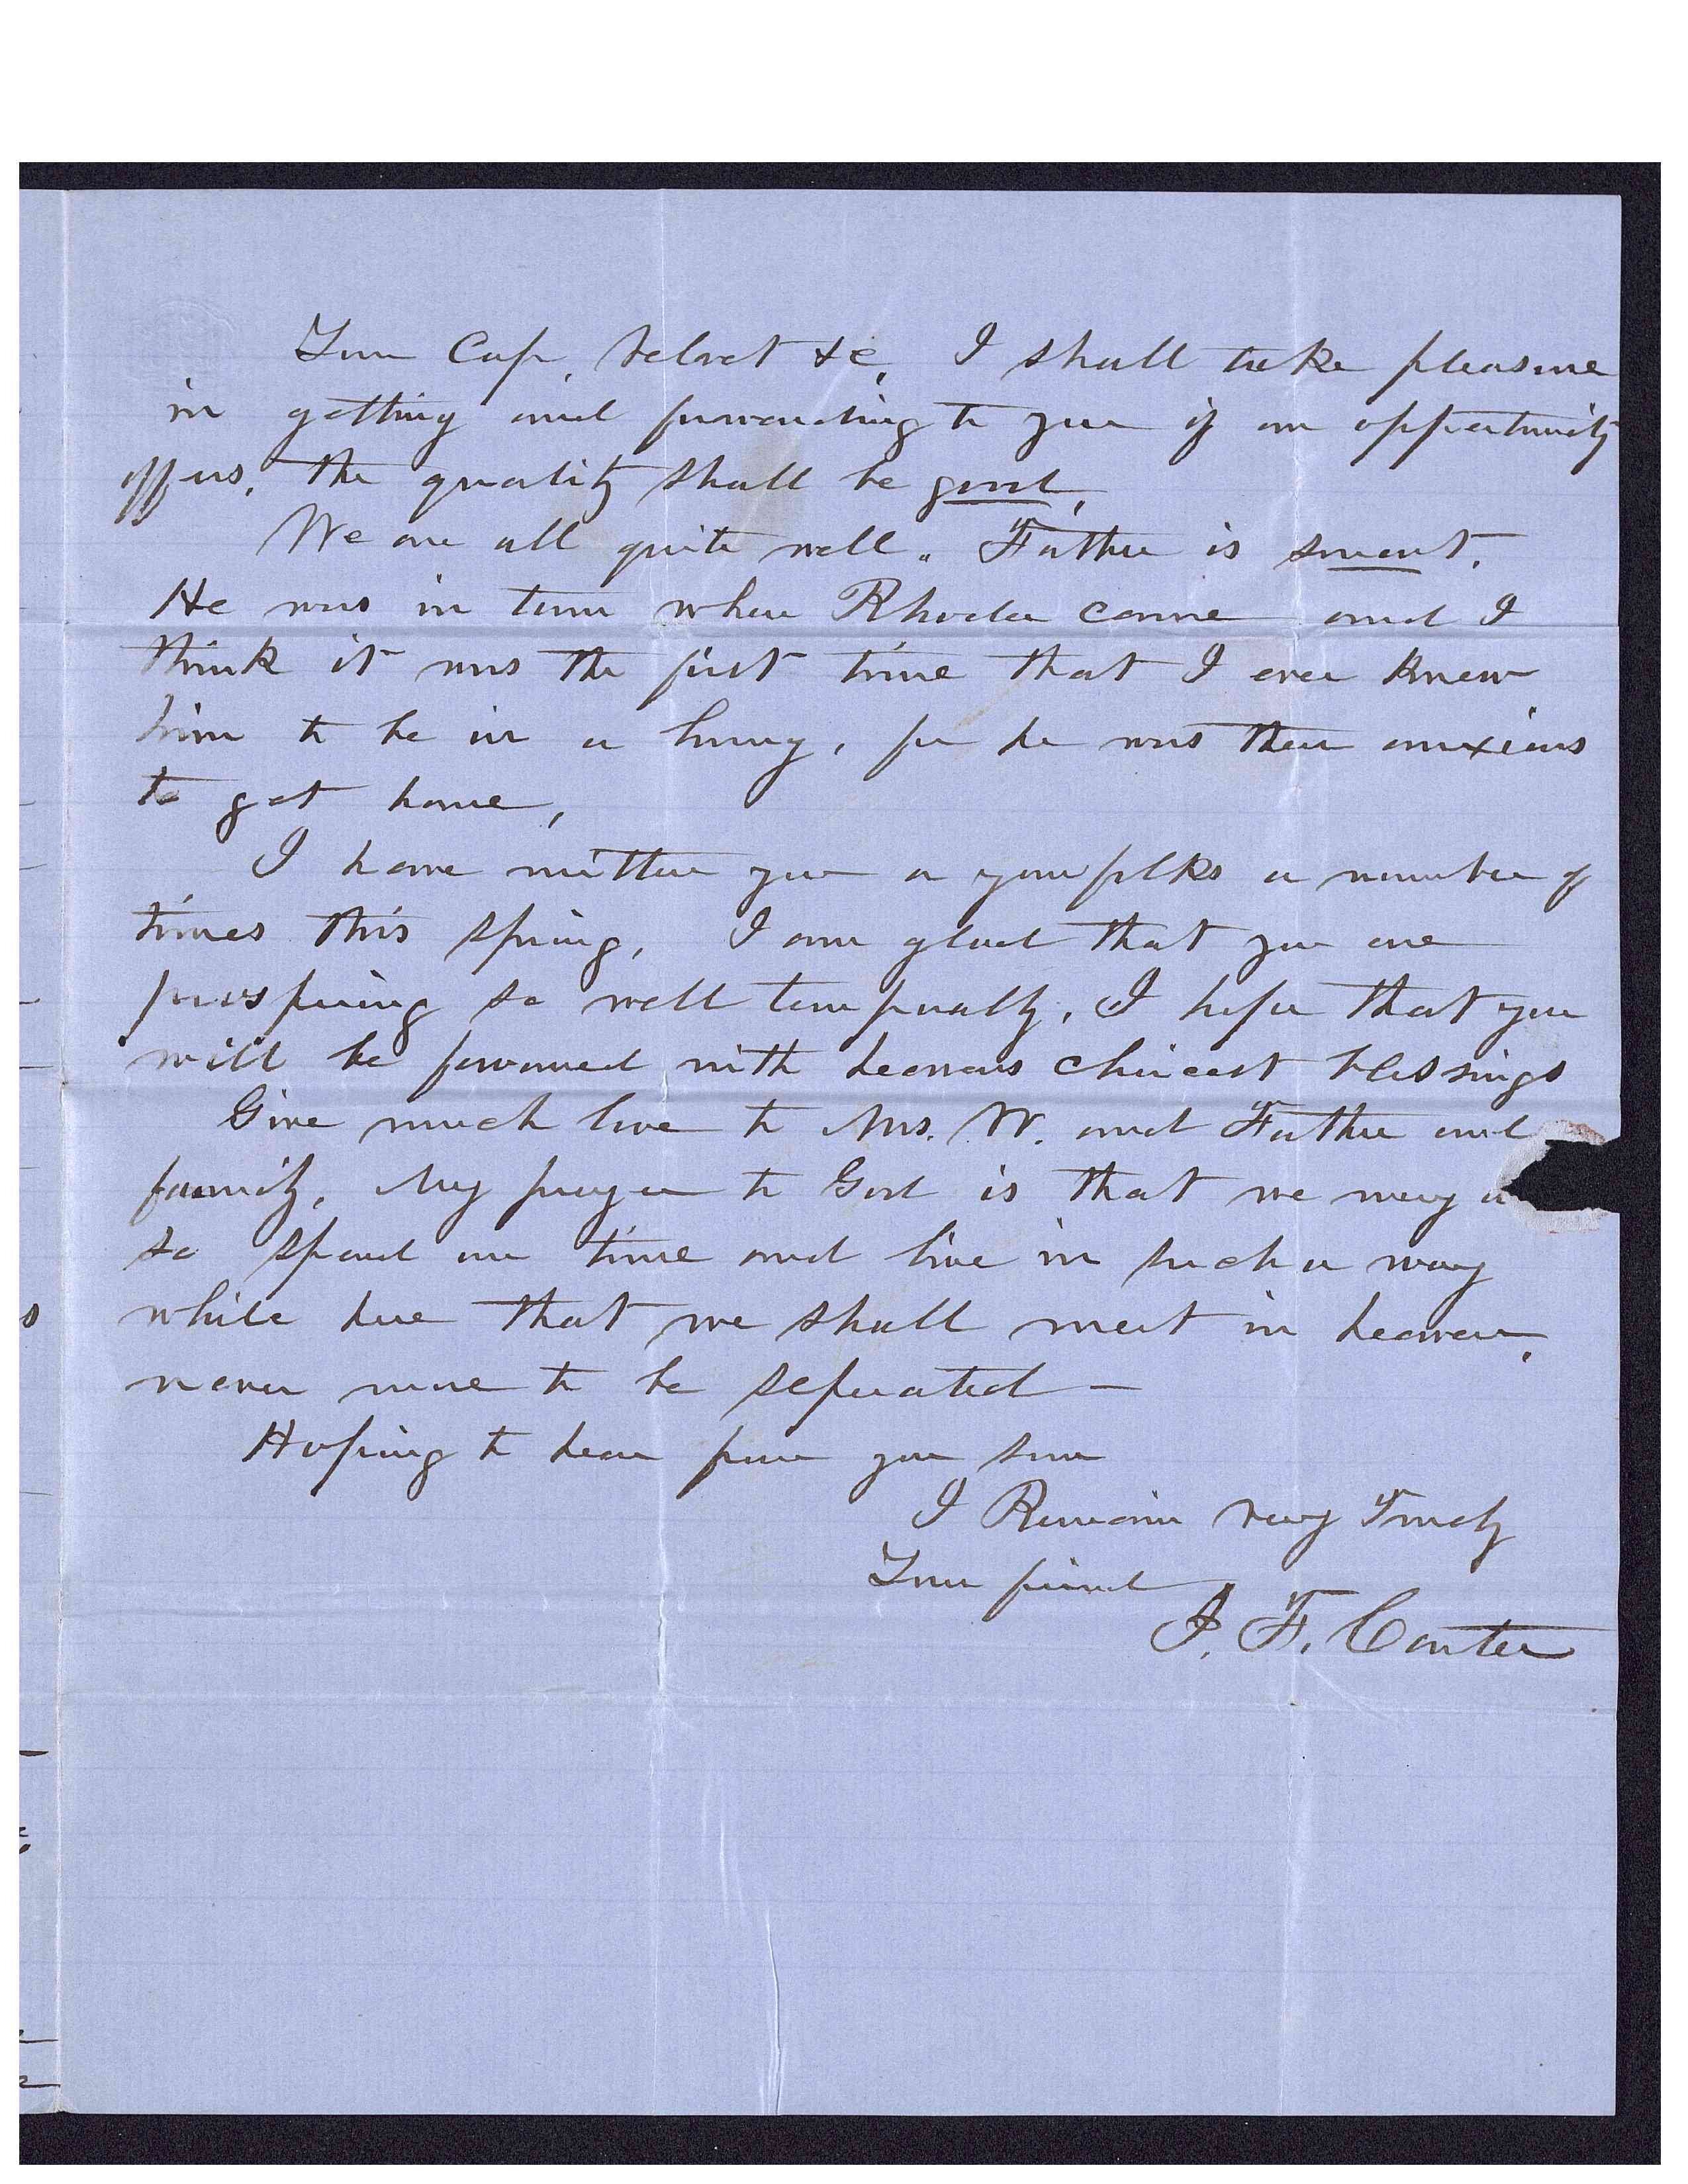 Your Cap, Velvet &c, I shall take pleasure
in getting and forwarding to you if an opportunity
offers, the quality shall be good,
We are all quite well. Father is smart.
He was in town when Rhoda came and I
think it was the first time that I ever knew
him to be in a hurry, for he was then anxious
to get home,
I have written you or your folks a number of
times this spring, I am glad that you are
prospering so well temporally, I hope that you
will be favoured with heavens choicest blessings
Give much love to Mrs. W. and Father and
family, My prayer to God is that we may
so spend our time and live in such a way
while here that we shall meet in heaven,
never more to be separated —
Hoping to hear from you soon
I Remain very Truly
Your friend
F. Carter